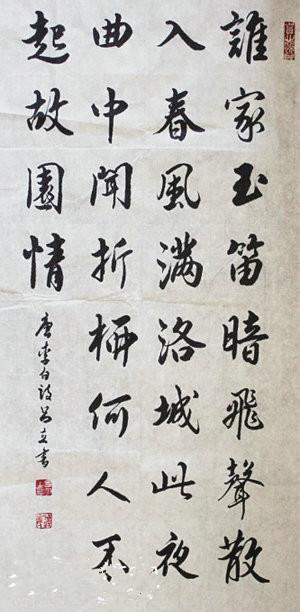 誰家玉笛暗飛聲散
入春風滿洛城此夜
曲中聞折柳何人不
起故園情
唐李白詩